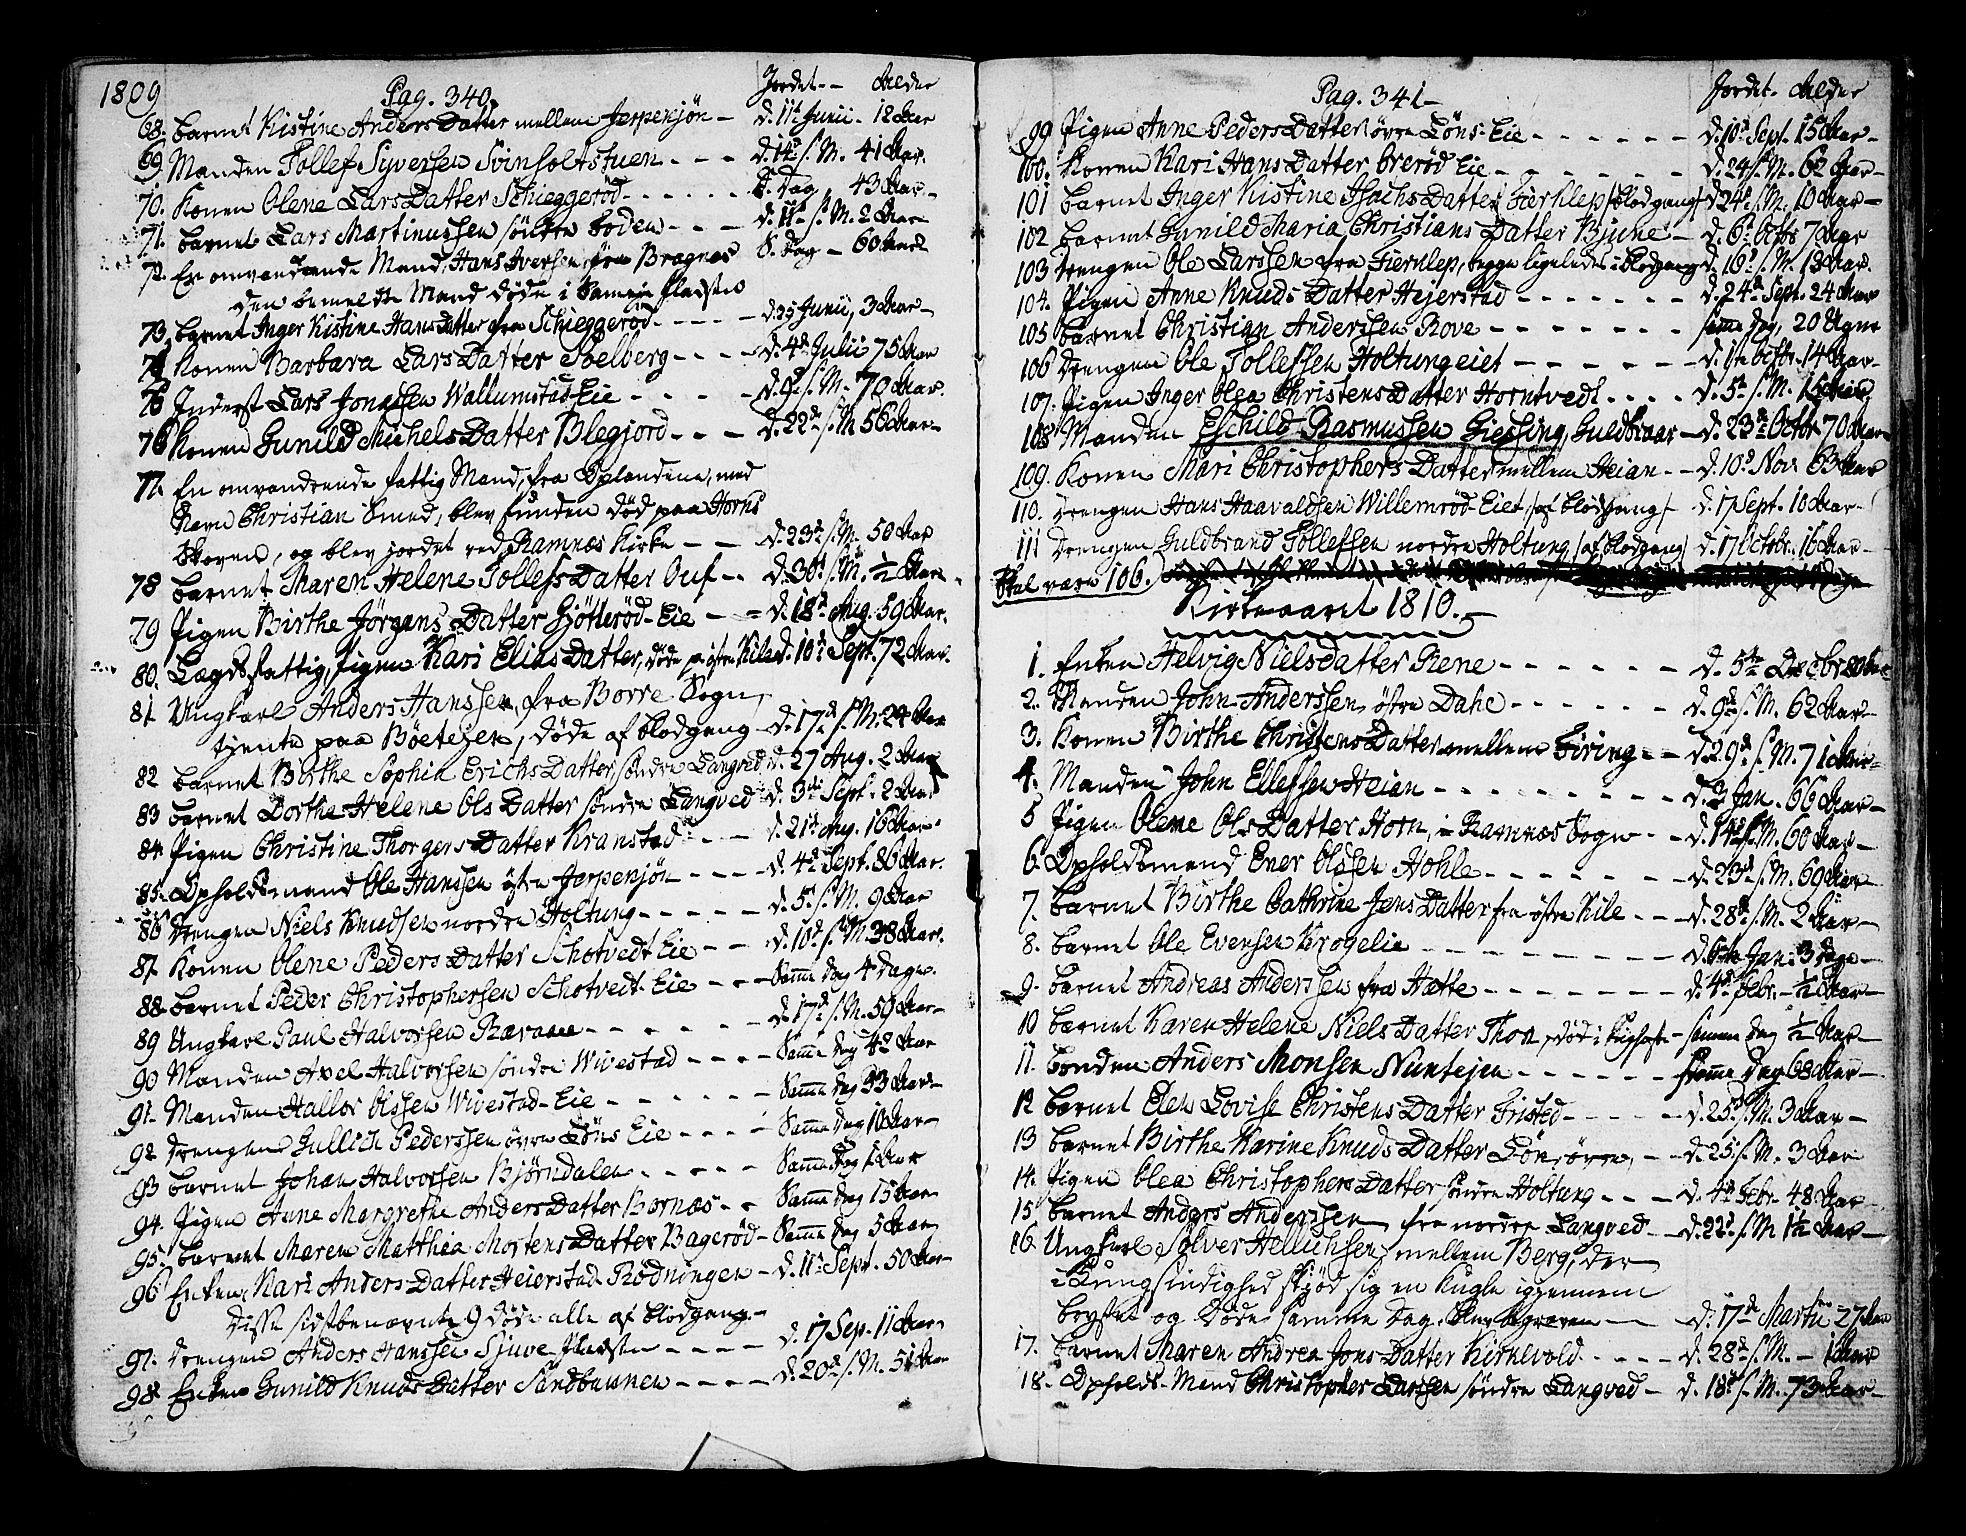 1809
Pag. 340. Jordet -- Alder
68. Barnet Kistine Anders Datter mellem Jerpenjön - d. 11te Junii - 12 Aar
69. Manden Tollef Syversen Svinholtstuen - - - d. 14de s. M. 41 Aar.
70. Konen Olene Lars Datter Schieggeröd - - - - - - S. Dag, 43 Aar -
71. Barnet Lars Martinussen söndre Boden - - - d. 11te s. M. 2 Aar
72. En omvandrende Mand, Hans Iversen fra Bragnæs S. Dag - 60 Aar
den bemeldte Mand döde i Samme Pladsen
73. Barnet Inger Kistine Hans Datter fra Schieggeröd - - - - d. 25 Junii, 3 Aar -
74 Konen Barbara Lars Datter Solberg - - - - d. 4de Julii 75 Aar
75 Inderst Lars Jonassen Wallumstad-Eie - - - - - d. s. M. - 70 Aar.
76 Konen Gunild Michels Datter Blegjord - - - d. 22de s. M 56 Aar -
77. En omvandrende fattig Mand, fra Oplandene, med
Navn Christian Smed, blev funden död paa Horns
Skoven, og blev jordet ved Ramnæs Kirke - - d. 23de s. M. 50 Aar
78 Barnet Maren Helene Tollefs Datter Ouf - - d. 30te s. M. ½ Aar -
79 Pigen Birthe Jörgens Datter Gjötteröd-Eie - - d. 18de Aug. 59 Aar.
80. Lægdsfattig, Pigen Kari Elias Datter, döde p. östre Kile d. 10de Sept. 72 Aar.
81. Ungkarl Anders Hanssen, fra Borre Sogn,
tjente paa Böetejen, döde af blodgang - d. 17de s. M. 24 Aar
82 Barnet Birthe Sophie Erichs Datter söndre Langved d. 27 Aug. 2 Aar
83 Barnet Dorthe Helene Ols Datter söndre Langved d. 3die Sept. 2 Aar
84. Pigen Christine Thorgers Datter Kranstad - - - d. 21de Aug. 16 Aar -
85. Opholdsmand Ole Hanssen östre Jerpenjön - - - - d. 4de Sept. 86 Aar.
86 Drengen Niels Knudsen nordre Holtung - - - - - d. 5te s. M. 9 Aar
87. Konen Olene Peders Datter Schotvedt Eie - - d. 10de s. M. 38 Aar.
88. Barnet Peder Christophersen Schotvedt-Eie - - - Samme dag 4 dage.
89 Ungkarl Paul Halvorsen Rævaae - - - - - - d. 17de s. M. 50 Aar -
90 Manden Axel Halvorsen söndre Wivestad - - - - Samme dag 42 Aar
91. Manden Hallor Olssen Wivestad-Eie - - - - - - Samme dag 33 Aar -
92 Drengen Gullich Pederssen övre Löns Eie - - - - Samme dag 10 Aar -
93 Barnet Johan Halvorsen Björndalen - - - - - Samme dag 5 Aar
94. Pigen Anne Margrethe Anders Datter Bornæs - - Samme dag 15 Aar
95. Barnet Maren Matthea Mortens Datter Bageröd - Samme dag 5 Aar
96 Enken Kari Anders Datter Heierstad Rödningen - d. 11te Sept. 50 Aar -
Disse sidstbenævnte 9 döde alle af blodgang. -
97. Drengen Anders Hanssen Sjuve Pladsen - - - - d. 17 Sep. 11 Aar
98. Enken Gunild Knuds Datter Sandbunnen - - - - d. 20de s. M. 51 Aar
Pag. 341 - Jordet - Alder
99 Pigen Anne Peders Datter övre Löns-Eie - - - - - - d. 10de Sept. 15 Aar -
100. Konen Kari Hans Datter Oreröd Eie - - - - - - d. 24 s. M. 62 Aar -
101 Barnet Inger Kistine Isachs Datter Fierklep / blodgang / d. 24de s. M. 10 Aar -
102 Barnet Gunild Maria Christians Datter Bjune - d. 6te Octbr 7 Aar
103 Drengen Ole Larssen fra Fierklep, begge ligeledes i blodgang d. 16de s. M. 13 Aar.
104. Pigen Anne Knuds Datter Hejerstad - - - - - - - d. 24de Sept. 24 Aar
105 Barnet Christian Anderssen Rove - - - - - - - samme dag, 20 Uger
106 Drengen Ole Tollefsen Holtungeiet - - - - - - d. 1te Octbr. 14 Aar -
107. Pigen Inger Olea Christens Datter Horntvedt - - - - d. 5te s. M. 15 Aar
108 Manden Eschild Rasmussen Giessing, Guldbraar - d. 23de Octbr 70 Aar
109. Konen Mari Christophers Datter mellem Heian - - d. 10de Nov. 63 Aar
110. Drengen Hans Haavaldsen Willemröd-Eiet / af blodgang / - d. 17 Sept. 10 Aar -
111 Drengen Guldbrand Tollefsen nordre Holtung / af blodgang / d. 17 Octbr. 16 Aar -
Skal være 106.
Kirkeaaret 1810. -
1. Enken Helvig Nielsdatter Rene - - - - - - d. 5te Decbr 80 Aar
2. Manden John Anderssen östre Dahl - - - - - - d. 9de s. M. 62 Aar -
3. Konen Birthe Christens Datter mellem Firing - - d. 29de s. M. 71 Aar -
4. Manden John Ellefsen Heian - - - - - - - - - - d. 3 Jan. 66 Aar -
5 Pigen Olene Ols Datter Horn, i Ramnæs Sogn - - d. 14de s. M. 60 Aar -
6. Opholdsmand Ever Olssen Hohle - - - - - - - d. 23de s. M. 69 Aar -
7. Barnet Birthe Cathrine Jens Datter fra östre Kile - - - d. 28de s. M. 2 Aar -
8. Barnet Ole Evensen Krogelie - - - - - - - - d. 6te Jan: 3 Dage -
9. Barnet Andreas Anderssen fra Hætte - - - - - - - d. 4de Febr. - ½ Aar -
10 Barnet Karen Helene Niels Datter Thon, död i Kighoste - samme dag ½ Aar -
11. Bonden Anders Monsen Nuntejen - - - - - - samme dag 68 Aar -
12 Barnet Elen Lovise Christens Datter Fristed - - - - - d. 25de s. M. 3 Aar -
13 Barnet Birthe Karine Knuds Datter Lön, övre, - - d. 25 s. M. 3 Aar
14. Pigen Olea Christophers Datter söndre Holtung - - - d. 4de Febr. 48 Aar -
15 Barnet Anders Anderssen fra nordre Langved - - d. 22de s. M 1½ Aar -
16. Ungkarl Sölver Hellichsen, mellem Berg, der
i Tungsindighed skjöd sig en Kugle igjennem
brystet og döde samme Dag. blev begraven - - d. 17de Martii 27 Aar
17. Barnet Maren Andrea Jons Datter Kirkevold - - - - - d. 28de s. M. - 1 Aar
18. Opholds-Mand Christopher Larssen söndre Langved - d. 18de s. M. 73 Aar -